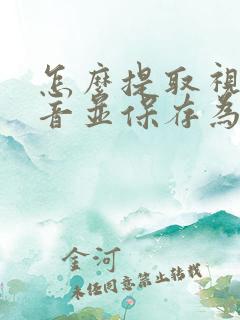 怎麼提取視
音並保存為
金河
未经同意禁止转载